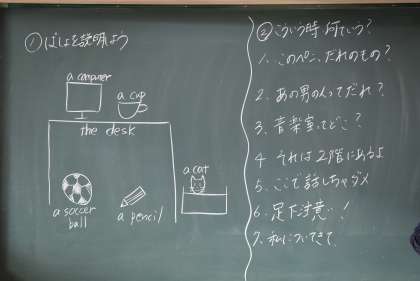 ①ばしょを説明しよう
a computer
a cup
the desk
a cat
a soccer
ball
a pencil
②こういう時何ていう?
1. このペン、だれのもの?
2. あの男の人ってだれ?
3. 音楽室ってどこ?
4 それは2階にあるよ
5. ここで話しちゃダメ
6. 足下注意!
7. 私についてきて